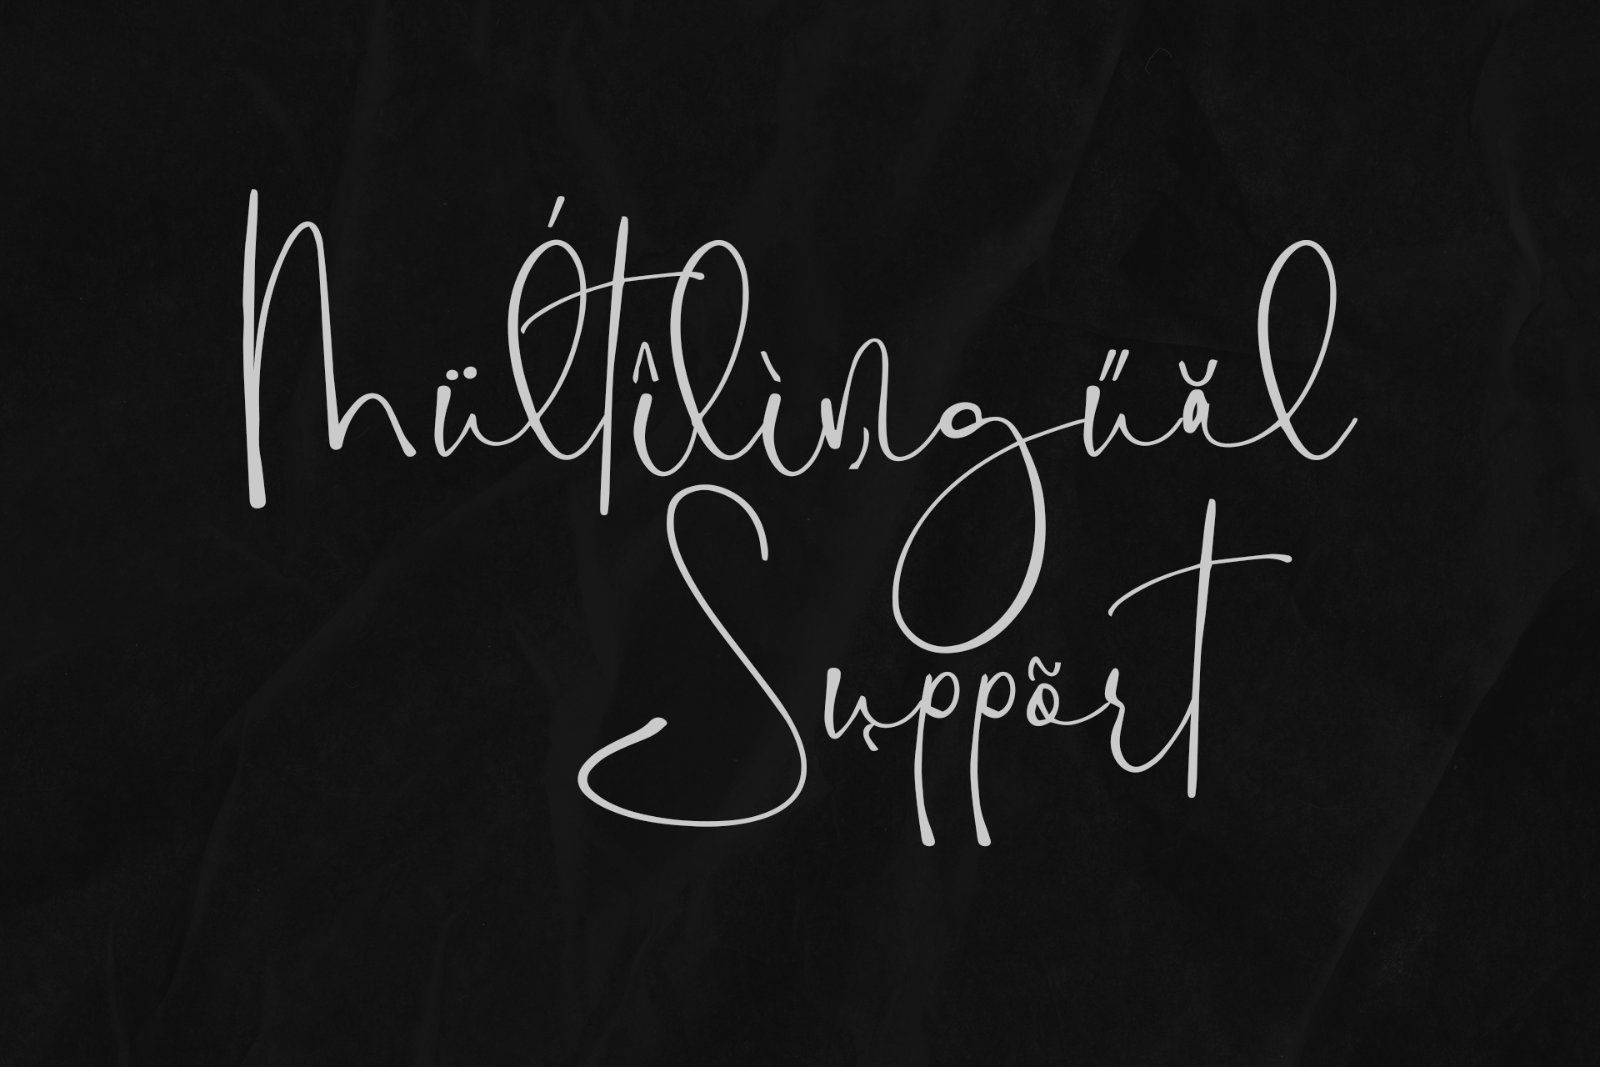 Müĺtîlìņgűăl
Sųppõrt